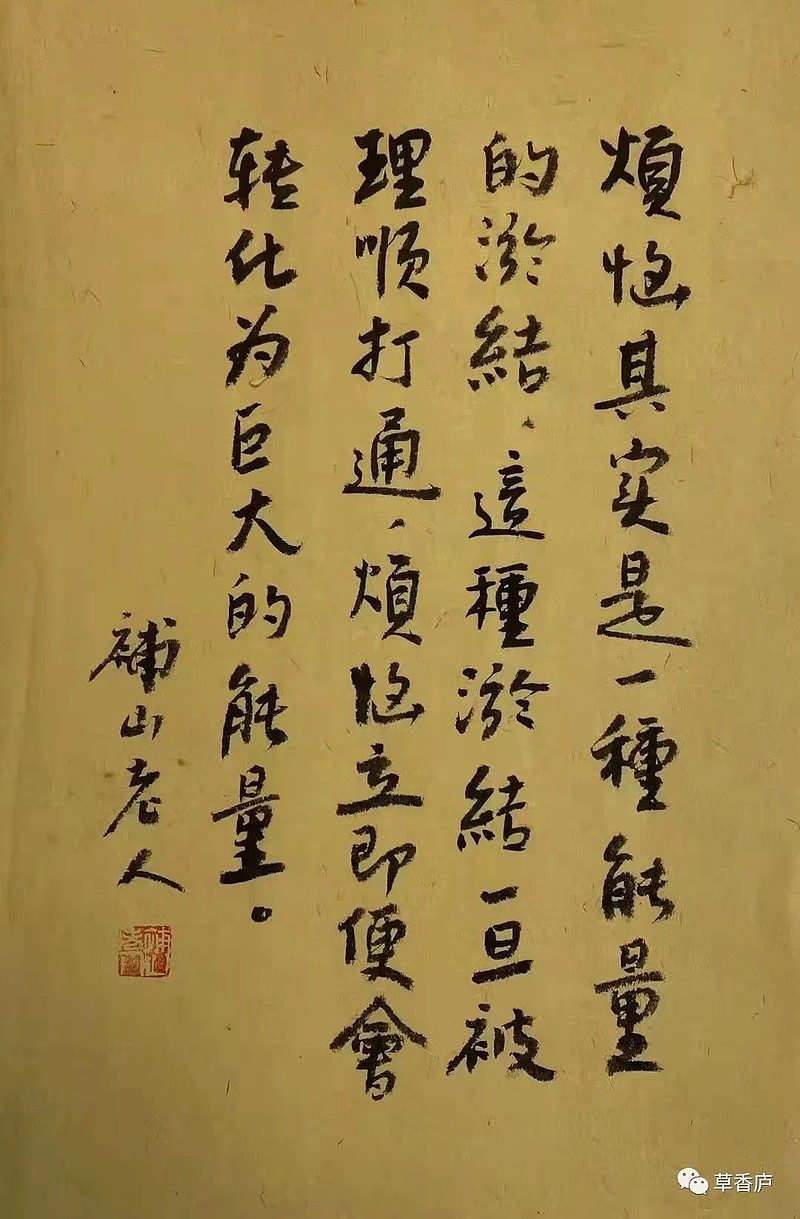 煩惱其实是一種能量
的瀠結，這種瀠結一旦被
理順打通，煩惱立即便會
转化为巨大的能量。
補山老人
草香庐